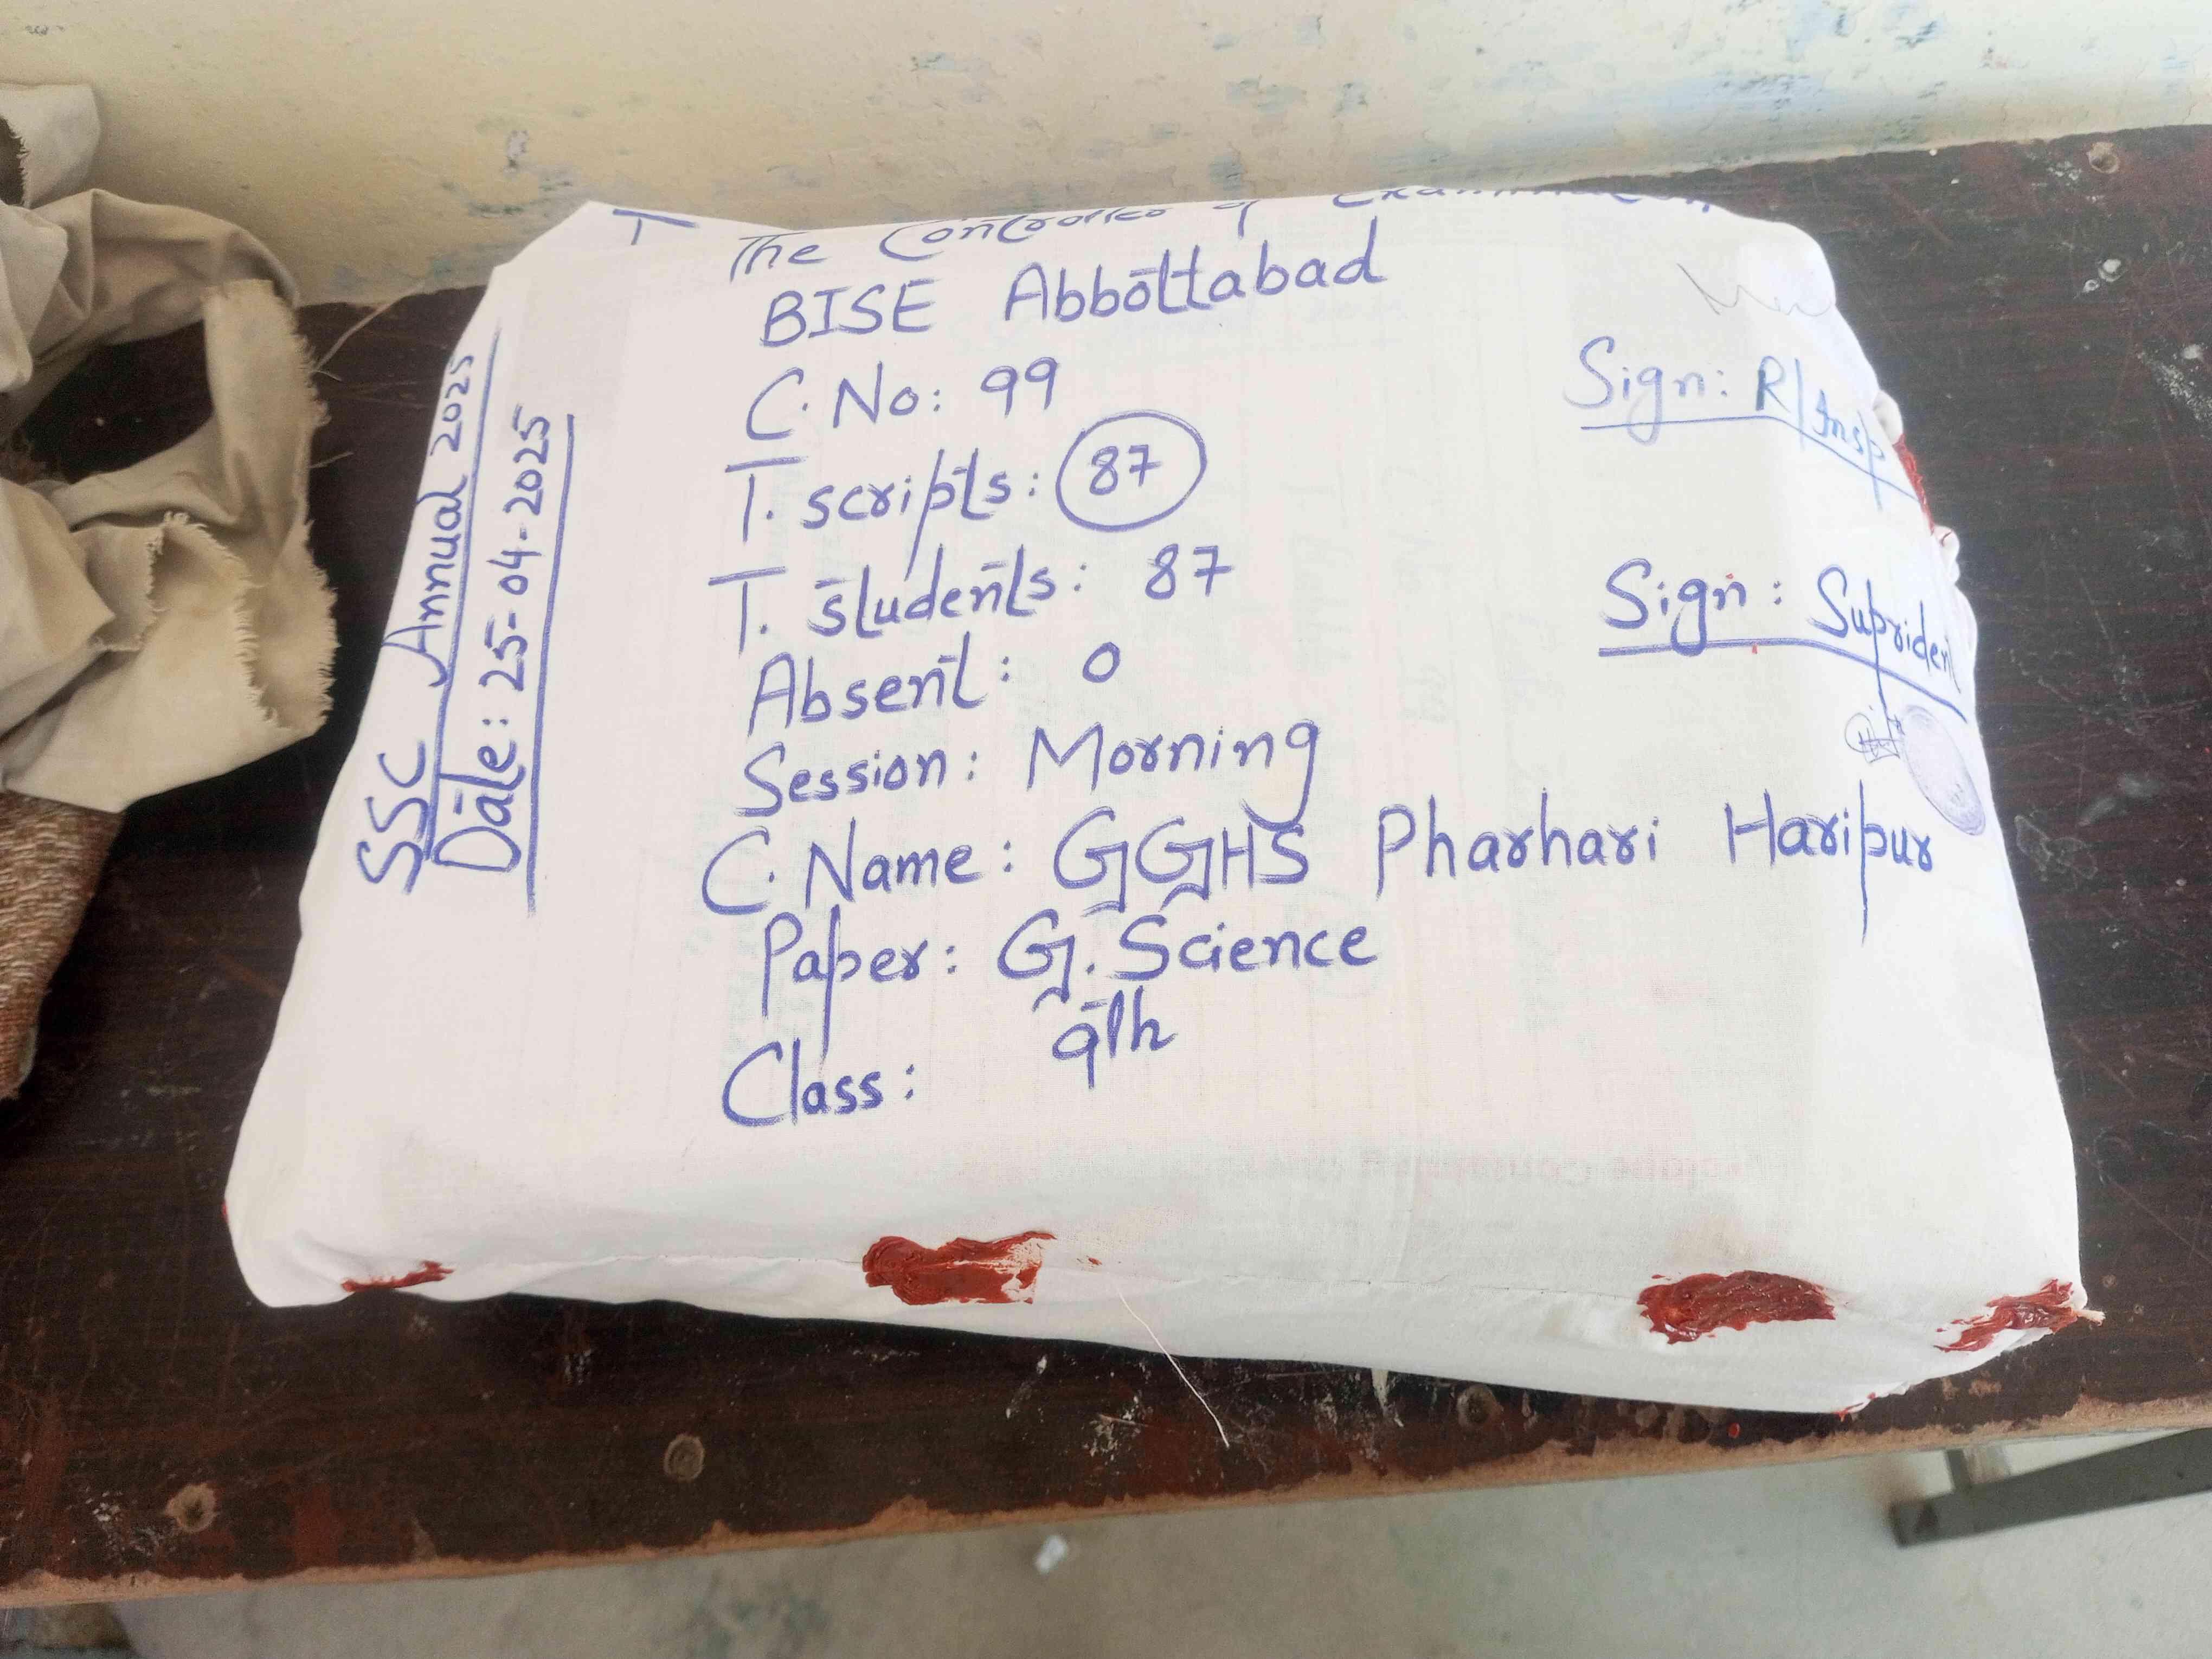 The Controller of Examination
BISE Abbottabad
C. No: 99
T. scripts: 87
T. students: 87
Absent: 0
Session: Morning
C. Name: GGHS Pharhari Haripur
Paper: G. Science
Class: 9th
SSC Annual 2025
Date: 25-04-2025
Sign: R/Insp
Sign: Supriden